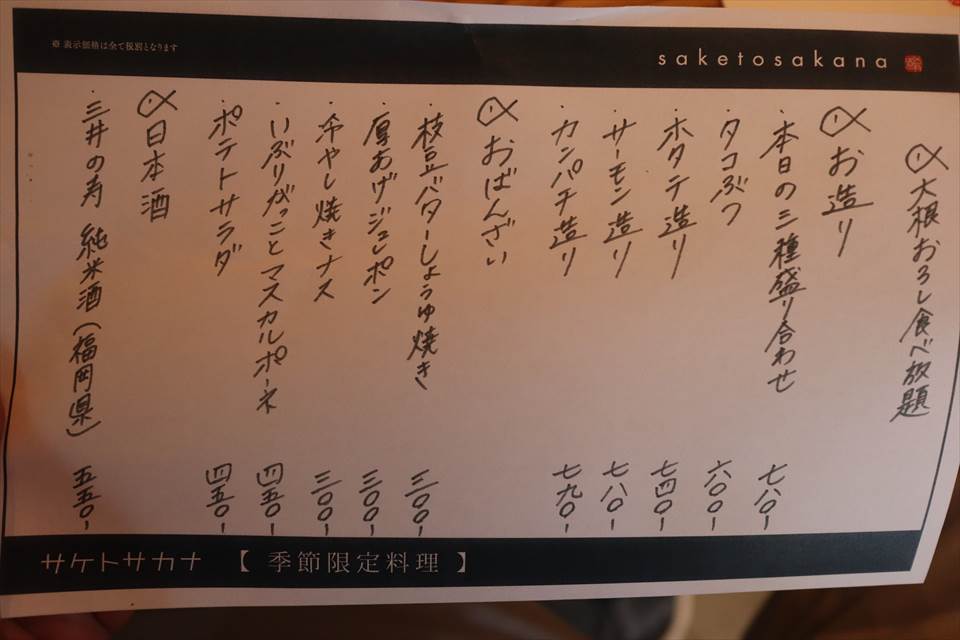 ※ 表示価格は全て税別となります
saketosakana
大根おろし食べ放題
お造り
・本日の三種盛り合わせ 七八〇-
・タコぶつ 六〇〇-
・ホタテ造り 七四〇-
・サーモン造り 七八〇-
・カンパチ造り 七九〇-
おばんざい
・枝豆バターしょうゆ焼き 三〇〇-
・厚あげジュレポン 三〇〇-
・冷やし焼きナス 三〇〇-
・いぶりがっことマスカルポーネ 四五〇-
・ポテトサラダ 四五〇-
日本酒
・三井の寿 純米酒(福岡県) 五五〇-
サケトサカナ 【 季節限定料理 】